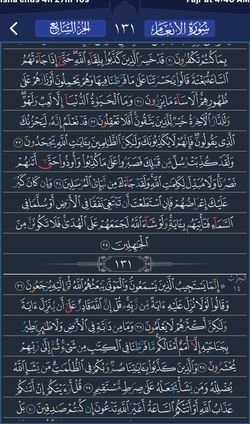 سُورَةُ الأَنْعَام
١٣١
الجزء السابع
بِمَا كُنتُمْ تَكْفُرُونَ ٣٠ قَدْ خَسِرَ الَّذِينَ كَذَّبُوا بِلِقَاءِ اللَّهِ حَتَّىٰ إِذَا جَاءَتْهُمُ
السَّاعَةُ بَغْتَةً قَالُوا يَا حَسْرَتَنَا عَلَىٰ مَا فَرَّطْنَا فِيهَا وَهُمْ يَحْمِلُونَ أَوْزَارَهُمْ عَلَىٰ
ظُهُورِهِمْ أَلَا سَاءَ مَا يَزِرُونَ ٣١ وَمَا الْحَيَاةُ الدُّنْيَا إِلَّا لَعِبٌ وَلَهْوٌ
وَلَلدَّارُ الْآخِرَةُ خَيْرٌ لِّلَّذِينَ يَتَّقُونَ أَفَلَا تَعْقِلُونَ ٣٢ قَدْ نَعْلَمُ إِنَّهُ لَيَحْزُنُكَ
الَّذِي يَقُولُونَ فَإِنَّهُمْ لَا يُكَذِّبُونَكَ وَلَٰكِنَّ الظَّالِمِينَ بِآيَاتِ اللَّهِ يَجْحَدُونَ ٣٣
وَلَقَدْ كُذِّبَتْ رُسُلٌ مِّن قَبْلِكَ فَصَبَرُوا عَلَىٰ مَا كُذِّبُوا وَأُوذُوا حَتَّىٰ أَتَاهُمْ
نَصْرُنَا وَلَا مُبَدِّلَ لِكَلِمَاتِ اللَّهِ وَلَقَدْ جَاءَكَ مِن نَّبَإِ الْمُرْسَلِينَ ٣٤ وَإِن كَانَ كَبُرَ
عَلَيْكَ إِعْرَاضُهُمْ فَإِنِ اسْتَطَعْتَ أَن تَبْتَغِيَ نَفَقًا فِي الْأَرْضِ أَوْ سُلَّمًا فِي
السَّمَاءِ فَتَأْتِيَهُم بِآيَةٍ وَلَوْ شَاءَ اللَّهُ لَجَمَعَهُمْ عَلَى الْهُدَىٰ فَلَا تَكُونَنَّ مِنَ
الْجَاهِلِينَ ٣٥
١٣١
إِنَّمَا يَسْتَجِيبُ الَّذِينَ يَسْمَعُونَ وَالْمَوْتَىٰ يَبْعَثُهُمُ اللَّهُ ثُمَّ إِلَيْهِ يُرْجَعُونَ ٣٦
وَقَالُوا لَوْلَا نُزِّلَ عَلَيْهِ آيَةٌ مِّن رَّبِّهِ قُلْ إِنَّ اللَّهَ قَادِرٌ عَلَىٰ أَن يُنَزِّلَ آيَةً
وَلَٰكِنَّ أَكْثَرَهُمْ لَا يَعْلَمُونَ ٣٧ وَمَا مِن دَابَّةٍ فِي الْأَرْضِ وَلَا طَائِرٍ يَطِيرُ
بِجَنَاحَيْهِ إِلَّا أُمَمٌ أَمْثَالُكُم مَّا فَرَّطْنَا فِي الْكِتَابِ مِن شَيْءٍ ثُمَّ إِلَىٰ رَبِّهِمْ
يُحْشَرُونَ ٣٨ وَالَّذِينَ كَذَّبُوا بِآيَاتِنَا صُمٌّ وَبُكْمٌ فِي الظُّلُمَاتِ مَن يَشَإِ اللَّهُ
يُضْلِلْهُ وَمَن يَشَأْ يَجْعَلْهُ عَلَىٰ صِرَاطٍ مُّسْتَقِيمٍ ٣٩ قُلْ أَرَأَيْتَكُمْ إِنْ أَتَاكُمْ
عَذَابُ اللَّهِ أَوْ أَتَتْكُمُ السَّاعَةُ أَغَيْرَ اللَّهِ تَدْعُونَ إِن كُنتُمْ صَادِقِينَ ٤٠ بَلْ